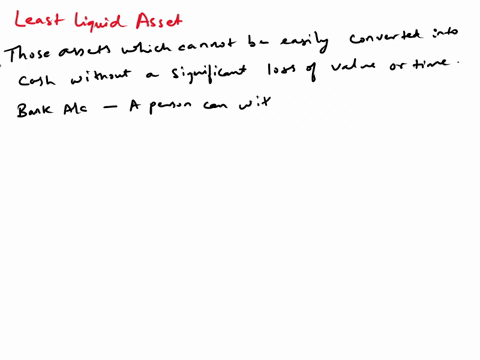 Least Liquid Asset
Those assets which cannot be easily converted into
cash without a significant loss of value or time.
Bank A/c — A person can wit